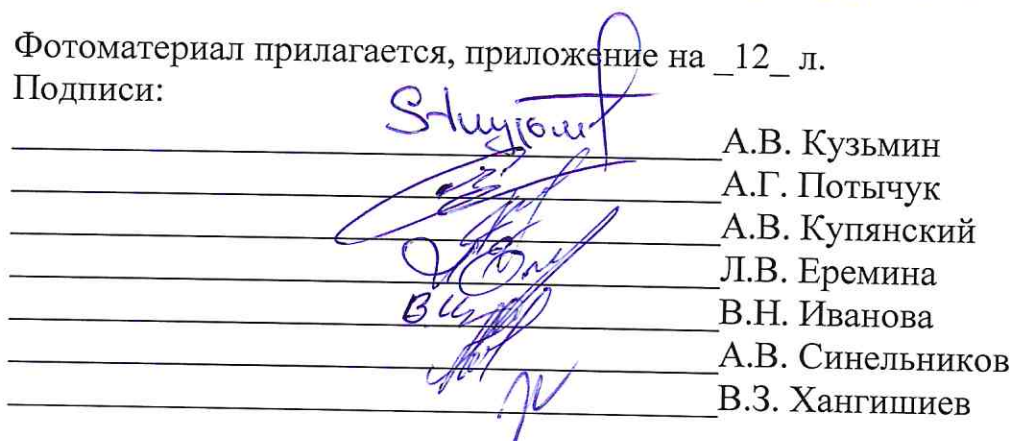 Фотоматериал прилагается, приложение на _12_ л.
Подписи:
А.В. Кузьмин
А.Г. Потычук
А.В. Купянский
Л.В. Еремина
В.Н. Иванова
А.В. Синельников
В.З. Хангишиев